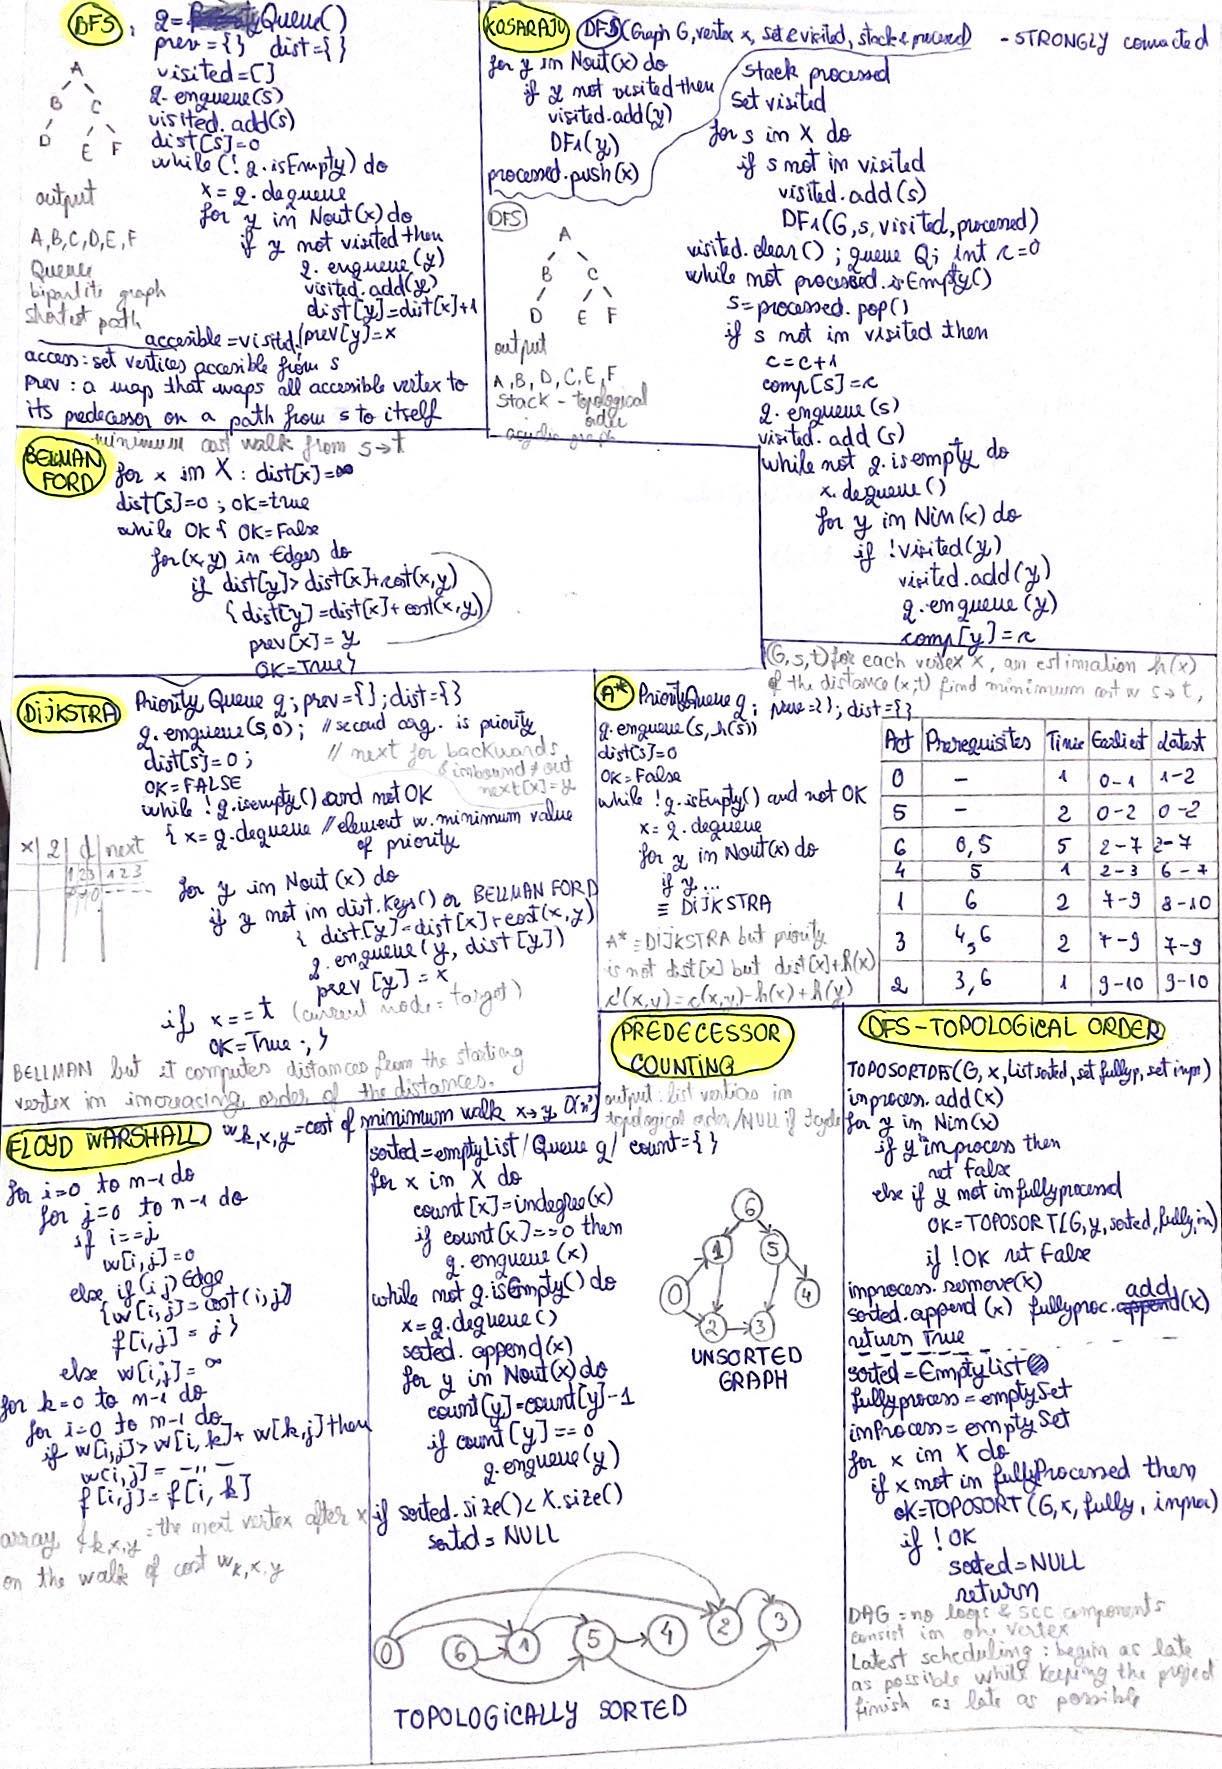 BFS: q = Queue()
prev = {} dist = {}
visited = []
q. enqueue(s)
visited. add(s)
dist[s]=0
while (! q. isEmpty) do
x = q. dequeue
for y in Nout(x) do
if y not visited then
q. enqueue(y)
visited. add(y)
dist[y]=dist[x]+1
prev[y]=x
A
B C
D E F
output
A, B, C, D, E, F
Queue
bipartite graph
shortest path
accesible = visited
access: set vertices accesible from s
prev : a map that maps all accessible vertex to
its predecessor on a path from s to itself
KOSARAJU DFS(Graph G, vertex x, set & visited, stack & proceed) - STRONGLY connacted
for y in Nout(x) do
if y not visited then
visited.add(y)
DF1(y)
processed.push(x)
DFS
A
B C
D E F
output
A, B, D, C, E, F
Stack - topological
order
acyclic graph
Stack processed
Set visited
for s in X do
if s not in visited
visited.add(s)
DF1(G, s, visited, processed)
visited.clear() ; queue Q; int c=0
while not processed.isEmpty()
s=processed.pop()
if s not in visited then
c=c+1
comp[s]=c
q. enqueue(s)
visited. add(s)
while not q. isempty do
x. dequeue()
for y in Nin(x) do
if !visited(y)
visited.add(y)
q. enqueue(y)
comp[y]=c
minimum cost walk from s→t
BELLMAN
FORD
for x in X : dist[x]=∞
dist[s]=0 ; OK=true
while OK { OK=False
for(x,y) in Edges do
if dist[y]> dist[x]+cost(x,y)
{ dist[y]=dist[x]+cost(x,y)
prev[x]=y
OK=True}
DIJKSTRA
Priority Queue q ; prev={} ; dist={}
q. enqueue(s,0); // second arg. is priority
dist[s]=0 ; // next for backwards
& inbound ≠ out
OK=FALSE next[x]=y
while ! q. isempty() and not OK
{ x=q. dequeue // element w. minimum value
of priority
x | 2 | d | next
1 2 3 | 1 2 3
for y in Nout(x) do
if y not in dist. keys() or BELLMAN FORD
{ dist[y]=dist[x]+cost(x,y)
q. enqueue(y, dist[y])
prev[y]=x
if x==t (current node = target)
OK=True ; }
BELLMAN but it computes distances from the starting
vertex in increasing order of the distances.
(G,s,t) for each vertex x, an estimation h(x)
of the distance(x,t) find minimum cost w s→t,
A* PriorityQueue q ; prev={} ; dist={}
q. enqueue(s, h(s))
dist[s]=0
OK=False
while !q. isEmpty() and not OK
x=q. dequeue
for y in Nout(x) do
if y ...
≡ DIJKSTRA
A* = DIJKSTRA but priority
is not dist[x] but dist[x]+h(x)
c'(x,y)=c(x,y)-h(x)+h(y)
Act Prerequisites Time Earliest Latest
0 - 1 0-1 1-2
5 - 2 0-2 0-2
6 0,5 5 2-7 2-7
4 5 1 2-3 6-7
1 6 2 7-9 8-10
3 4,6 2 7-9 7-9
2 3,6 1 9-10 9-10
FLOYD WARSHALL w k,x,y = cost of minimum walk x→y O(n³)
for i=0 to n-1 do
for j=0 to n-1 do
if i==j
w[i,j]=0
else if(i,j) Edge
{w[i,j]=cost(i,j)
f[i,j]=j}
else w[i,j]=∞
for k=0 to n-1 do
for i=0 to n-1 do
if w[i,j]>w[i,k]+w[k,j] then
w[i,j]= -„-
f[i,j]=f[i,k]
array f k,x,y = the next vertex after x
on the walk of cost w k,x,y
PREDECESSOR
COUNTING
output: list vertices in
topological order/NULL if ∃cycle
sorted=emptyList/Queue q/ count={ }
for x in X do
count[x]=indegree(x)
if count(x)==0 then
q. enqueue(x)
while not q.isEmpty() do
x=q.dequeue()
sorted. append(x)
for y in Nout(x) do
count(y)=count[y]-1
if count[y]==0
q.enqueue(y)
if sorted.size()<X.size()
sorted=NULL
6
1 5
0 4
2 3
UNSORTED
GRAPH
0 6 1 5 4 2 3
TOPOLOGICALLY SORTED
DFS-TOPOLOGICAL ORDER
TOPOSORTDFS(G, x, List sorted, set fullyp, set inpr)
inprocess. add(x)
for y in Nin(x)
if y in process then
ret False
else if y not in fullyprocessed
OK=TOPOSORT(G,y, sorted, fully, in)
if !OK ret False
inprocess. remove(x)
sorted. append (x) fullyproc. add(x)
return True
sorted = EmptyList
fullyprocess=emptySet
inProcess=emptySet
for x in X do
if x not in fullyProcessed then
OK=TOPOSORT (G,x, fully, inproc)
if ! OK
sorted=NULL
return
DAG = no loops & SCC components
consist in one vertex
Latest scheduling: begin as late
as possible while keeping the project
finish as late as possible